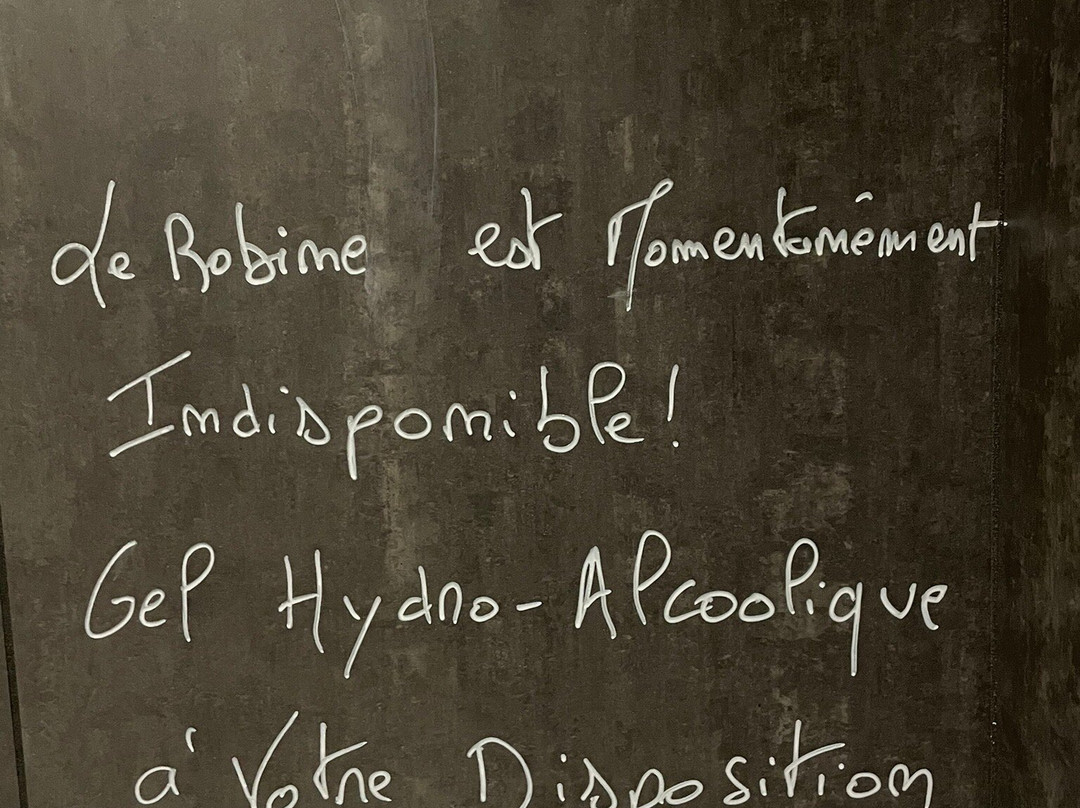 Le Robine est Momentanêment
Indisponible!
Gel Hydro-Alcoolique
à Votre Disposition